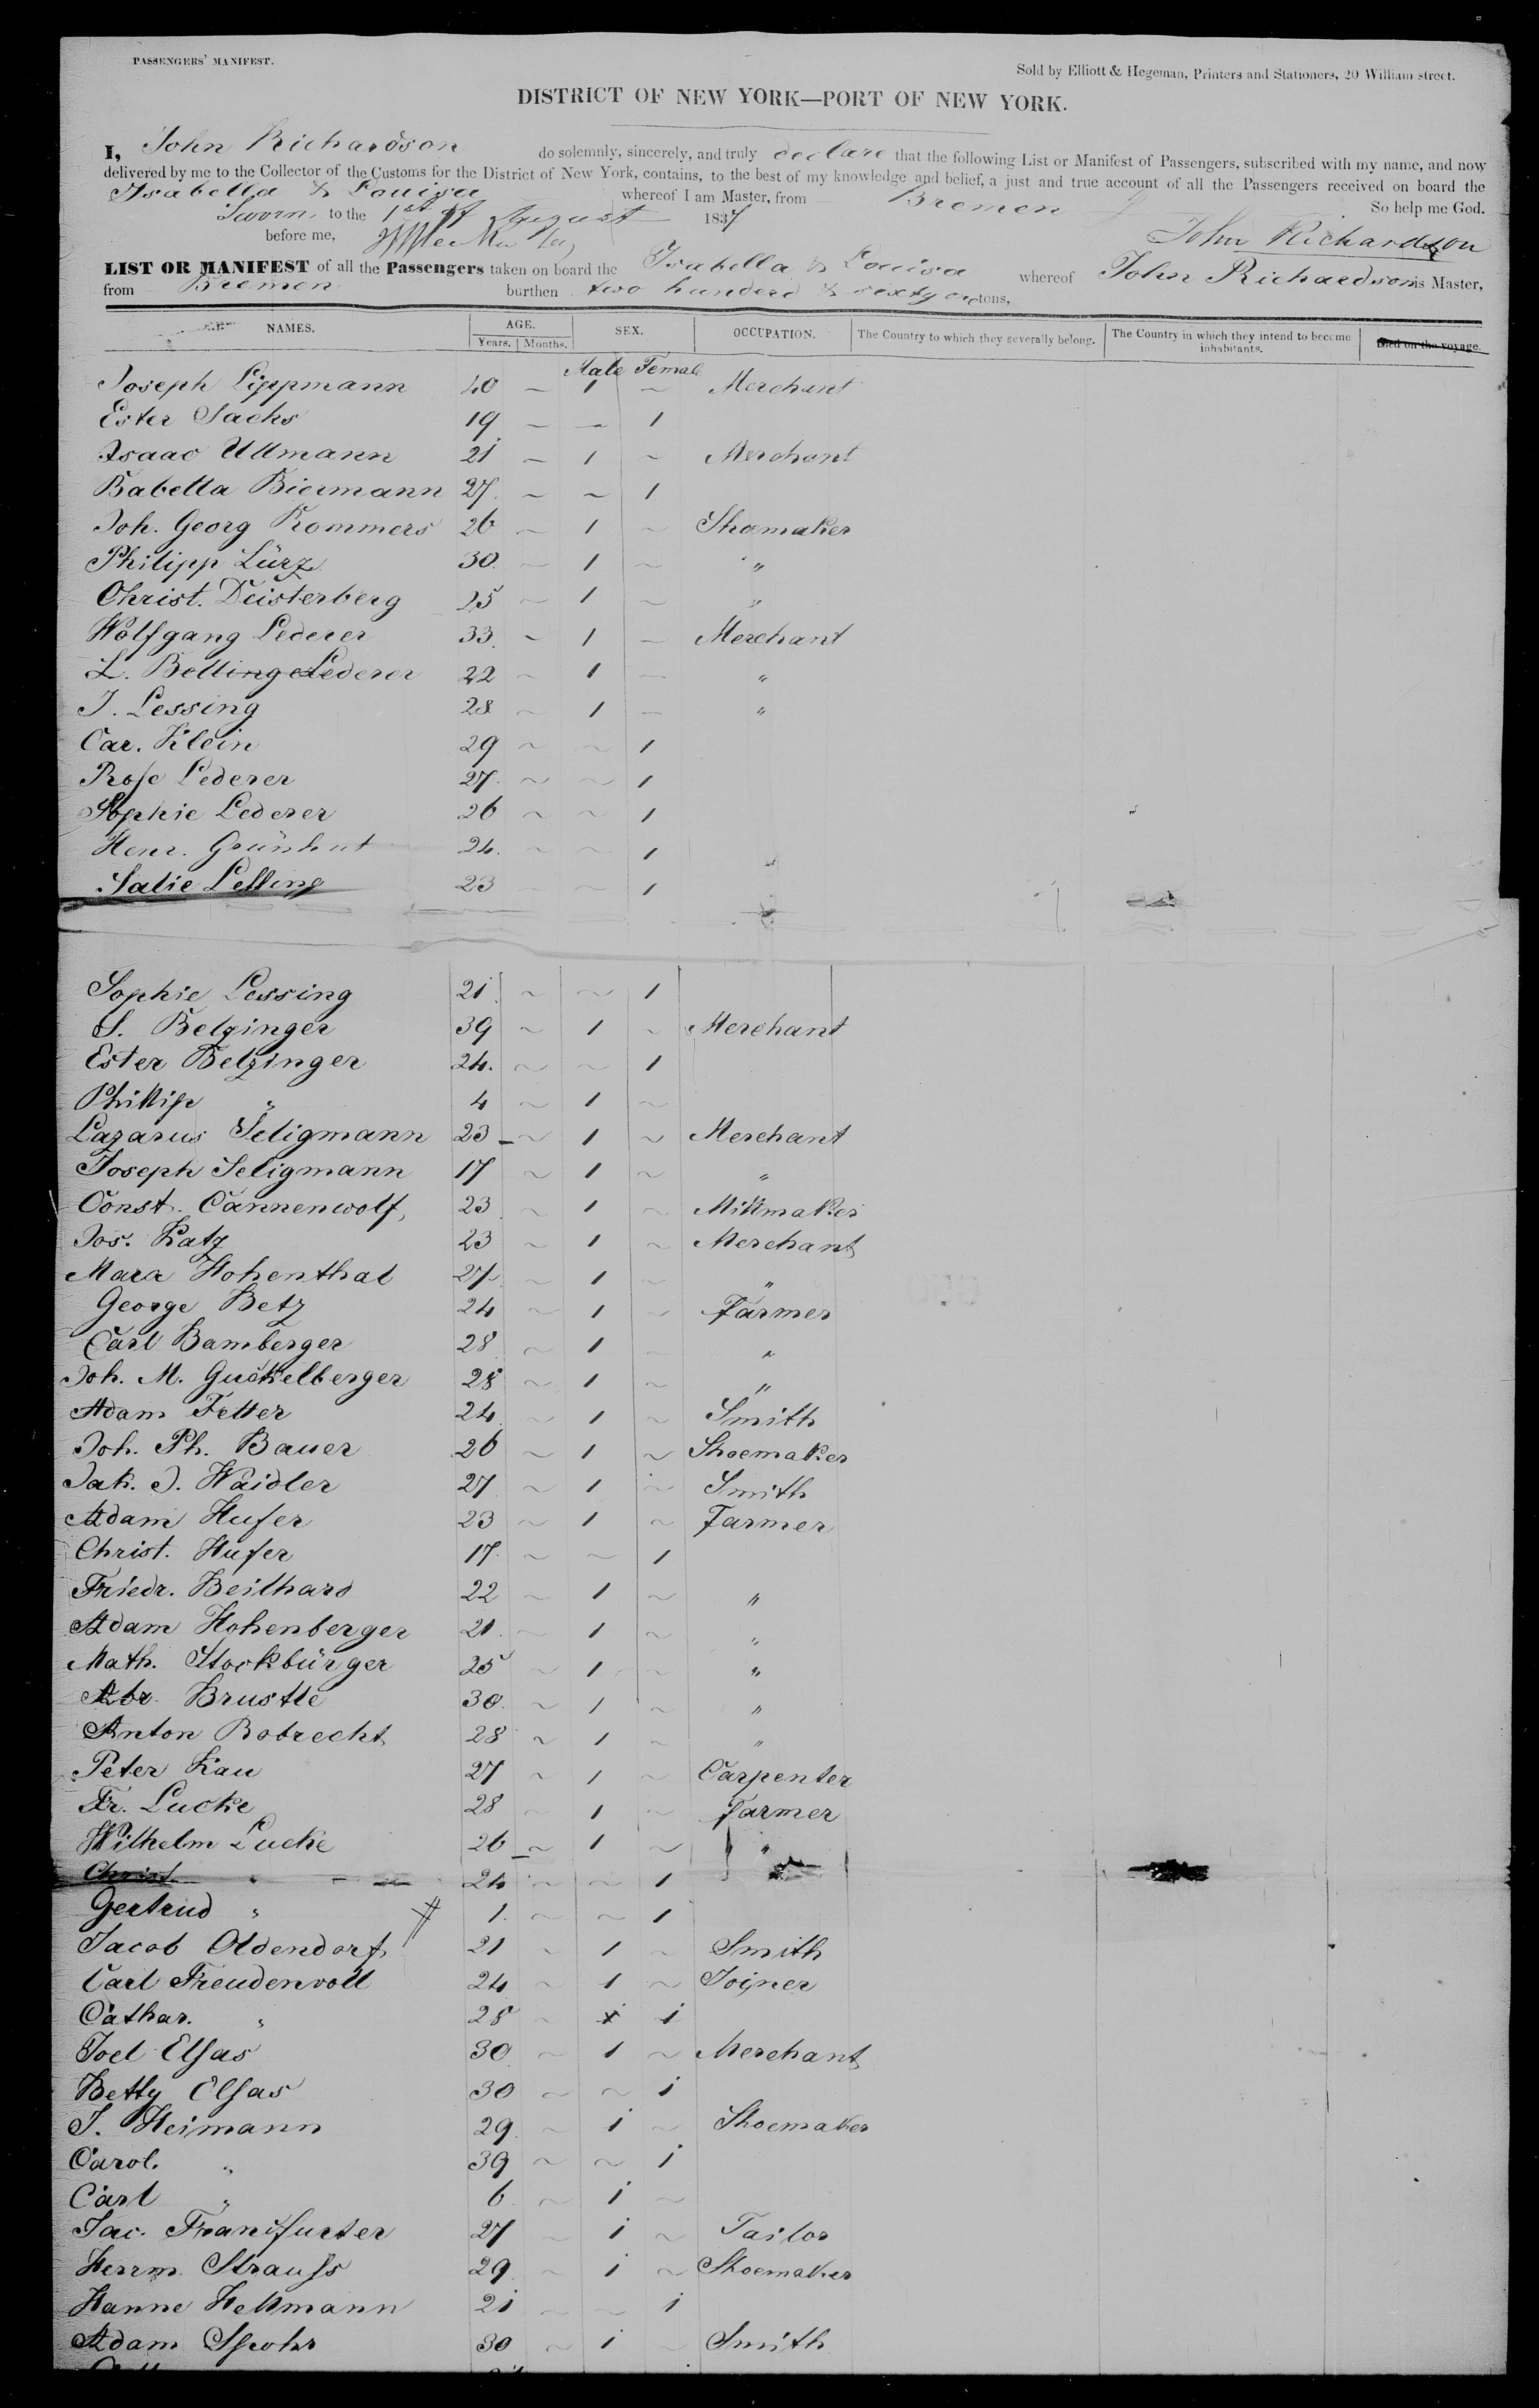 PASSENGERS' MANIFEST.
Sold by Elliott & Hegeman, Printers and Stationers, 20 William street.
DISTRICT OF NEW YORK—PORT OF NEW YORK.
I, John Richardson do solemnly, sincerely, and truly declare that the following List or Manifest of Passengers, subscribed with my name, and now
delivered by me to the Collector of the Customs for the District of New York, contains, to the best of my knowledge and belief, a just and true account of all the Passengers received on board the
Isabella & Louisa whereof I am Master, from Bremen So help me God.
Sworn to the 1st of August 1837
before me, John Richardson
LIST OR MANIFEST of all the Passengers taken on board the Isabella & Louisa whereof John Richardson is Master,
from Bremen burthen two hunderd & sixty one tons,
NAMES. AGE. Years. Months. SEX. OCCUPATION. The Country to which they severally belong. The Country in which they intend to become inhabitants. Died on the voyage.
Male Female
Joseph Lippmann 40 — 1 ~ Merchant
Ester Sachs 19 — — 1
Isaac Ullmann 21 — 1 ~ Merchant
Babella Biermann 27 ~ ~ 1
Joh. Georg Kommers 26 — 1 ~ Shomaker
Philipp Lürz 30 — 1 ~ "
Christ. Deisterberg 25 ~ 1 ~ "
Wolfgang Lederer 33 ~ 1 — Merchant
L. Bellinge Lederer 22 ~ 1 — "
J. Lessing 28 ~ 1 — "
Car. Klein 29 ~ ~ 1
Rose Lederer 27 ~ ~ 1
Sophie Lederer 26 ~ ~ 1
Henr. Grünhut 24 ~ ~ 1
Salie 23 ~ ~ 1
Sophie Lessing 21 ~ ~ 1
S. Belzinger 39 ~ 1 ~ Merchant
Ester Belzinger 24. ~ ~ 1
Phillip " 4 ~ 1 ~
Lazarus Seligmann 23 ~ 1 ~ Merchant
Joseph Seligmann 17 ~ 1 ~ "
Const. Cannenwolf 23 ~ 1 ~ Millmaker
Jos. Katz 23 ~ 1 ~ Merchant
Marx Hohenthal 27 ~ 1 ~ "
George Betz 24 ~ 1 ~ Farmer
Carl Bamberger 28 ~ 1 ~ "
Joh. M. Guckelberger 28 ~ 1 ~ "
Adam Fetter 24 ~ 1 ~ Smith
Joh. Ph. Bauer 26 ~ 1 ~ Shoemaker
Jak. J. Waidler 27 ~ 1 ~ Smith
Adam Hufer 23 ~ 1 ~ Farmer
Christ. Hufer 17 ~ ~ 1
Friedr. Beilhard 22 ~ 1 ~ "
Adam Hohenberger 21 ~ 1 ~ "
Math. Stockbürger 25 ~ 1 ~ "
Abr. Brustle 30 ~ 1 ~ "
Anton Robrecht 28 ~ 1 ~ "
Peter Kau 27 ~ 1 ~ Carpenter
Fr. Lucke 28 ~ 1 ~ Farmer
Wilhelm Lucke 26 ~ 1 ~ "
Christ. " 24 ~ ~ 1
Gertrud " 1. ~ ~ 1
Jacob Oldendorf 21 ~ 1 ~ Smith
Carl Freudenvoll 24 ~ 1 ~ Joiner
Cathar. " 28 ~ 1
Joel Elsas 30 ~ 1 ~ Merchant
Betty Elsas 30 ~ ~ 1
J. Heimann 29 ~ 1 ~ Shoemaker
Carol. " 39 ~ ~ 1
Carl " 6 ~ 1 ~
Jac. Frankfurter 27 ~ 1 ~ Tailor
Herrm. Strauss 29 ~ 1 ~ Shoemaker
Hanne Hellmann 21 ~ ~ 1
Adam Spohr 30 ~ 1 ~ Smith